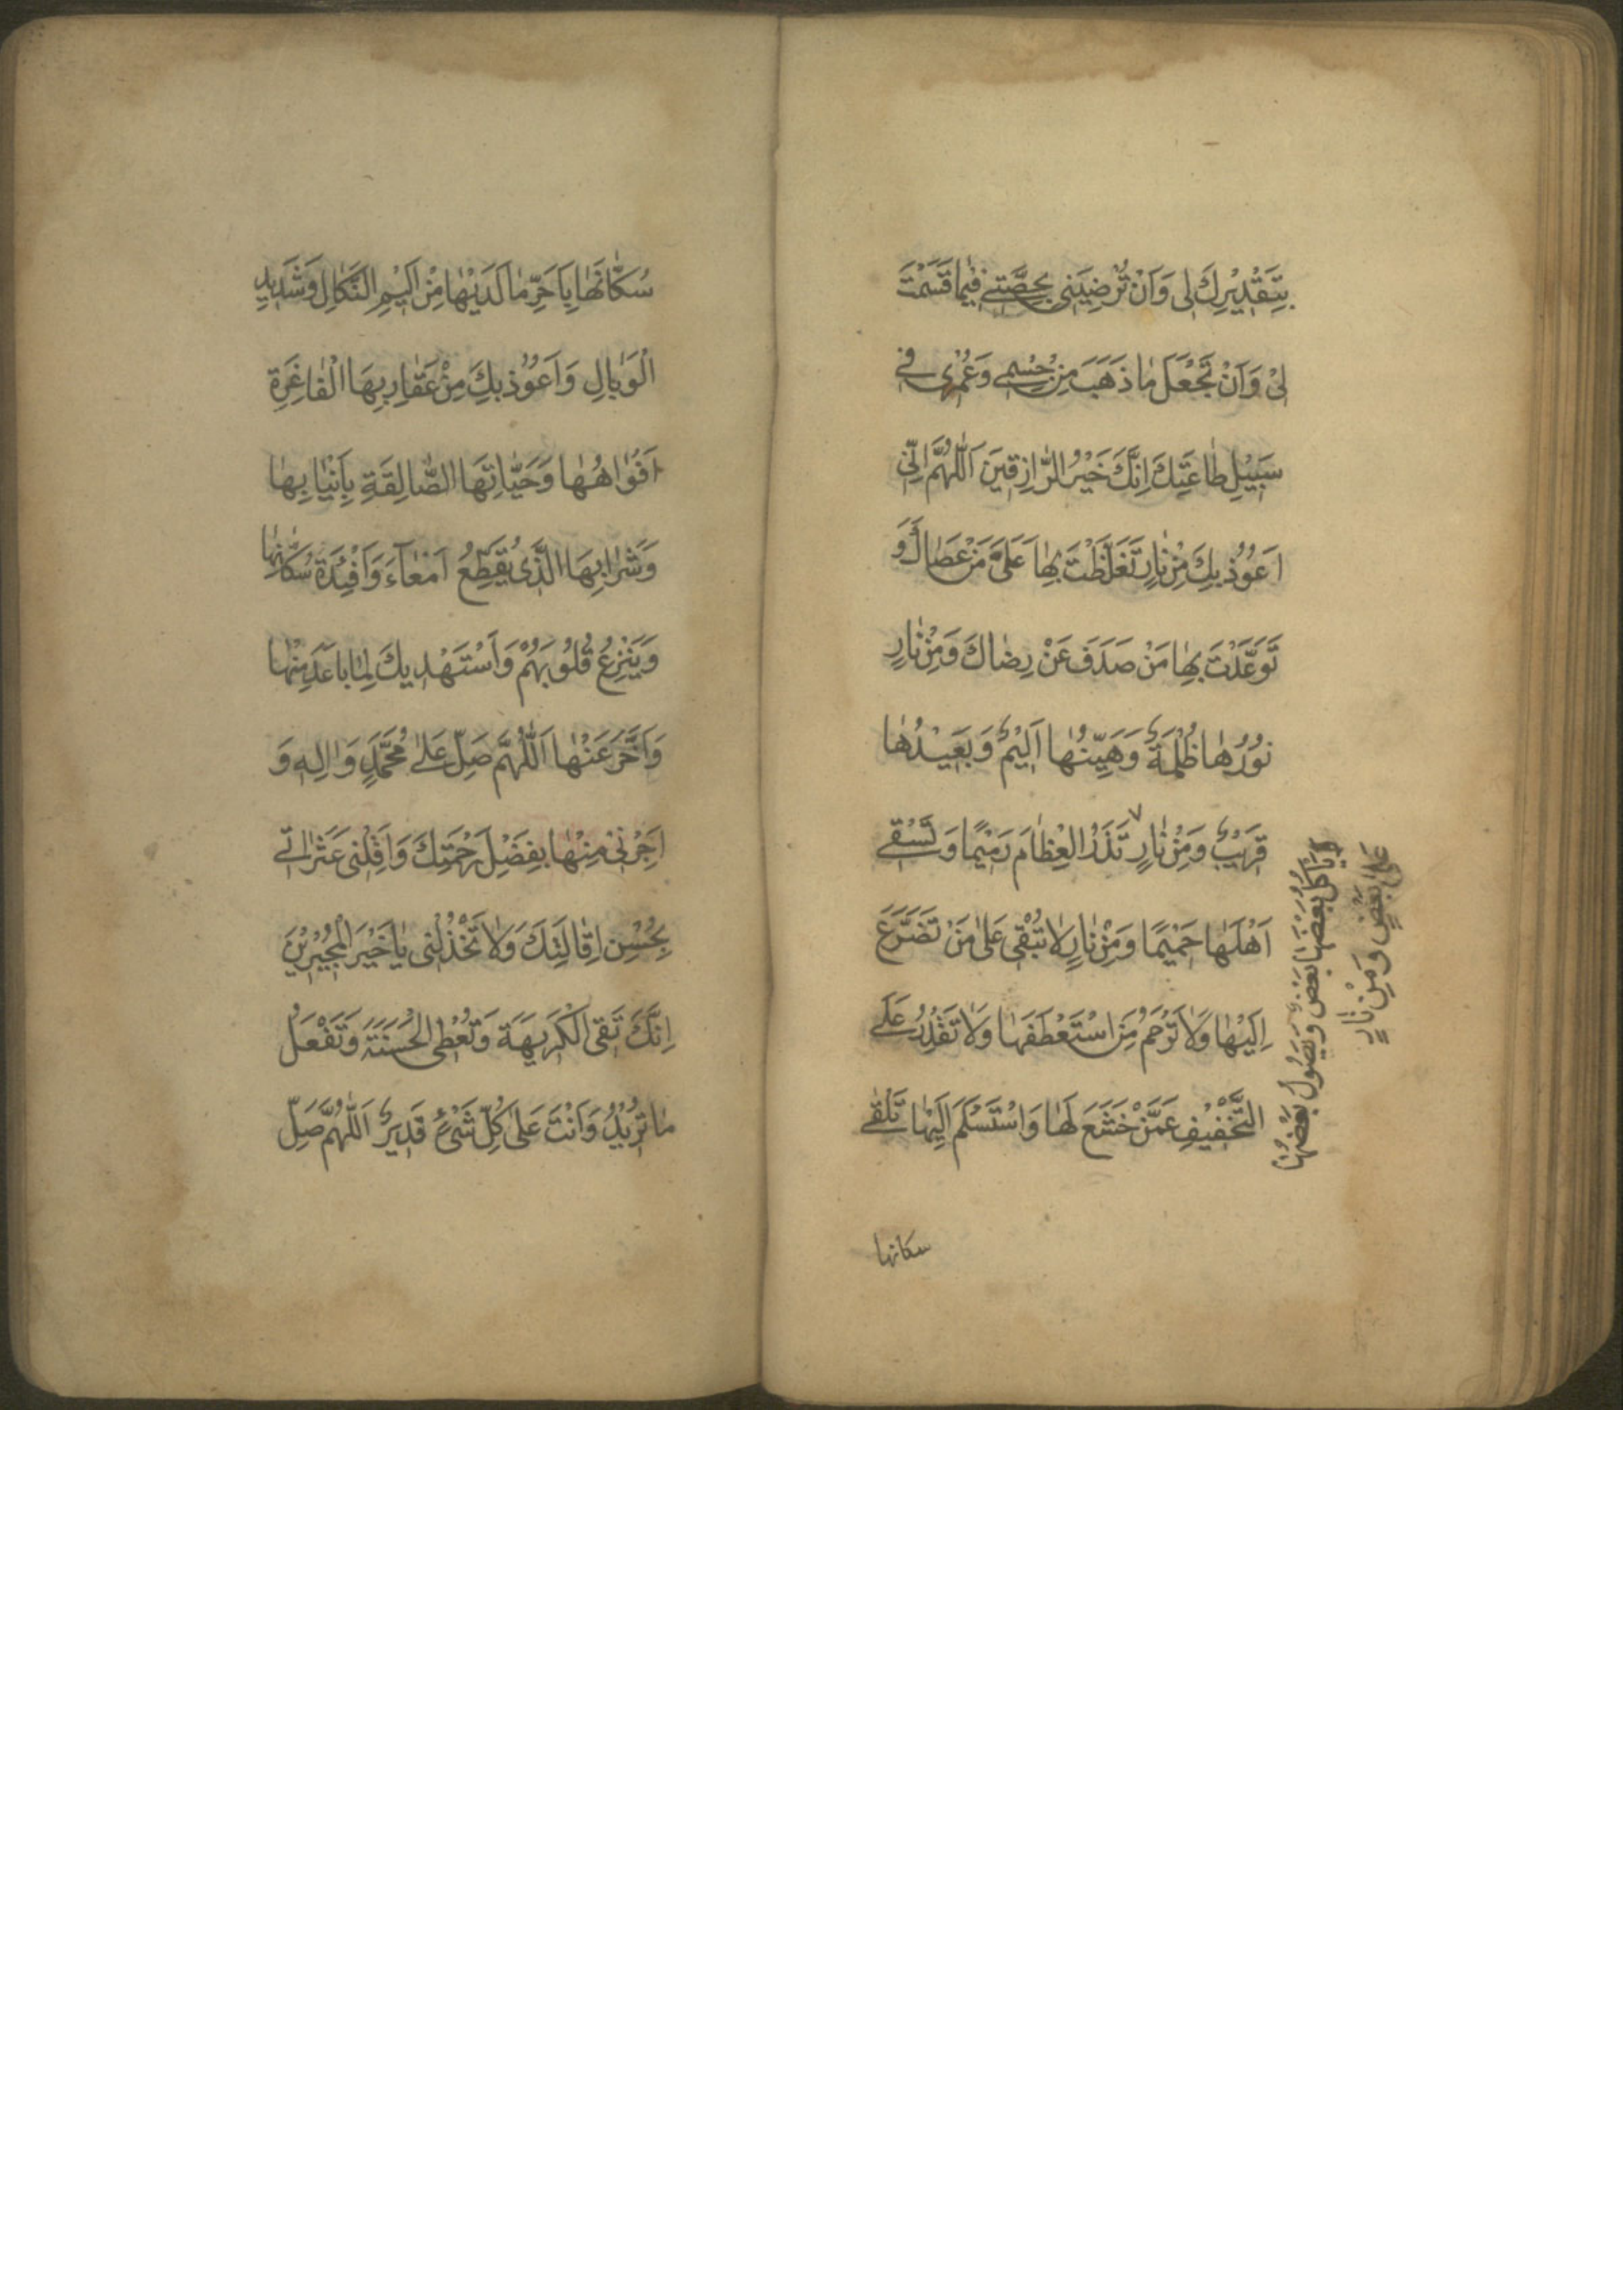 بِتَقْدِيْرِكَ لى وَاَنْ تُرْضِيَنى بِحِصَّتى فيما قَسَمْتَ
لى وَاَنْ تَجْعَلَ ما ذَهَبَ مِنْ جِسْمى وَعُمْرى فى
سَبيْلِ طاعَتِكَ اِنَّكَ خَيْرُ الرّازِقينَ اَللّهُمَّ اِنّى
اَعُوْذُ بِكَ مِنْ نارٍ تَغَلَّظْتَ بِها عَلى مَنْ عَصاكَ وَ
تَوَعَّدْتَ بِها مَنْ صَدَفَ عَنْ رِضاكَ وَمِنْ نارٍ
نُوْرُها ظُلْمَةٌ وَهَيِّنُها اَليْمٌ وَبَعيْدُها
قَريْبٌ وَمِنْ نارٍ تَذَرُ الْعِظامَ رَميْمًا وَتَسْقى
اَهْلَها حَميْمًا وَمِنْ نارٍ لا تُبْقى عَلى مَنْ تَضَرَّعَ
اِلَيْها وَلا تَرْحَمُ مَنِ اسْتَعْطَفَها وَلا تَقْدِرُ عَلَى
التَّخْفيْفِ عَمَّنْ خَشَعَ لَها وَاسْتَسْلَمَ اِلَيْها تَلْقى
سكانها
يَاْكُلُ بَعْضَها بَعْضٌ وَيَصُوْلُ بَعْضُها
عَلى بَعْضٍ وَمِنْ نارٍ
سُكّانَها بِاَحَرِّ ما لَدَيْها مِنْ اَليْمِ النَّكالِ وَشَديْدِ
الْوَبالِ وَاَعُوْذُ بِكَ مِنْ عَقارِبِهَا الْفاغِرَةِ
اَفْواهُها وَحَيّاتِهَا الصّالِقَةِ بِاَنْيابِها
وَشَرابِهَا الَّذى يُقَطِّعُ اَمْعاءَ وَاَفْئِدَةَ سُكّانِها
وَيَنْزِعُ قُلُوْبَهُمْ وَاَسْتَهْديكَ لِما باعَدَ مِنْها
وَاَخَّرَ عَنْها اَللّهُمَّ صَلِّ عَلى مُحَمَّدٍ وَالِه وَ
اَجِرْنى مِنْها بِفَضْلِ رَحْمَتِكَ وَاَقِلْنى عَثَراتى
بِحُسْنِ اِقالَتِكَ وَلا تَخْذُلْنى يا خَيْرَ الْمُجيْرِيْنَ
اِنَّكَ تَقِى الْكَريهَةَ وَتُعْطِى الْحَسَنَةَ وَتَفْعَلُ
ما تُريْدُ وَاَنْتَ عَلى كُلِّ شَىْءٍ قَديرٌ اَللّهُمَّ صَلِّ